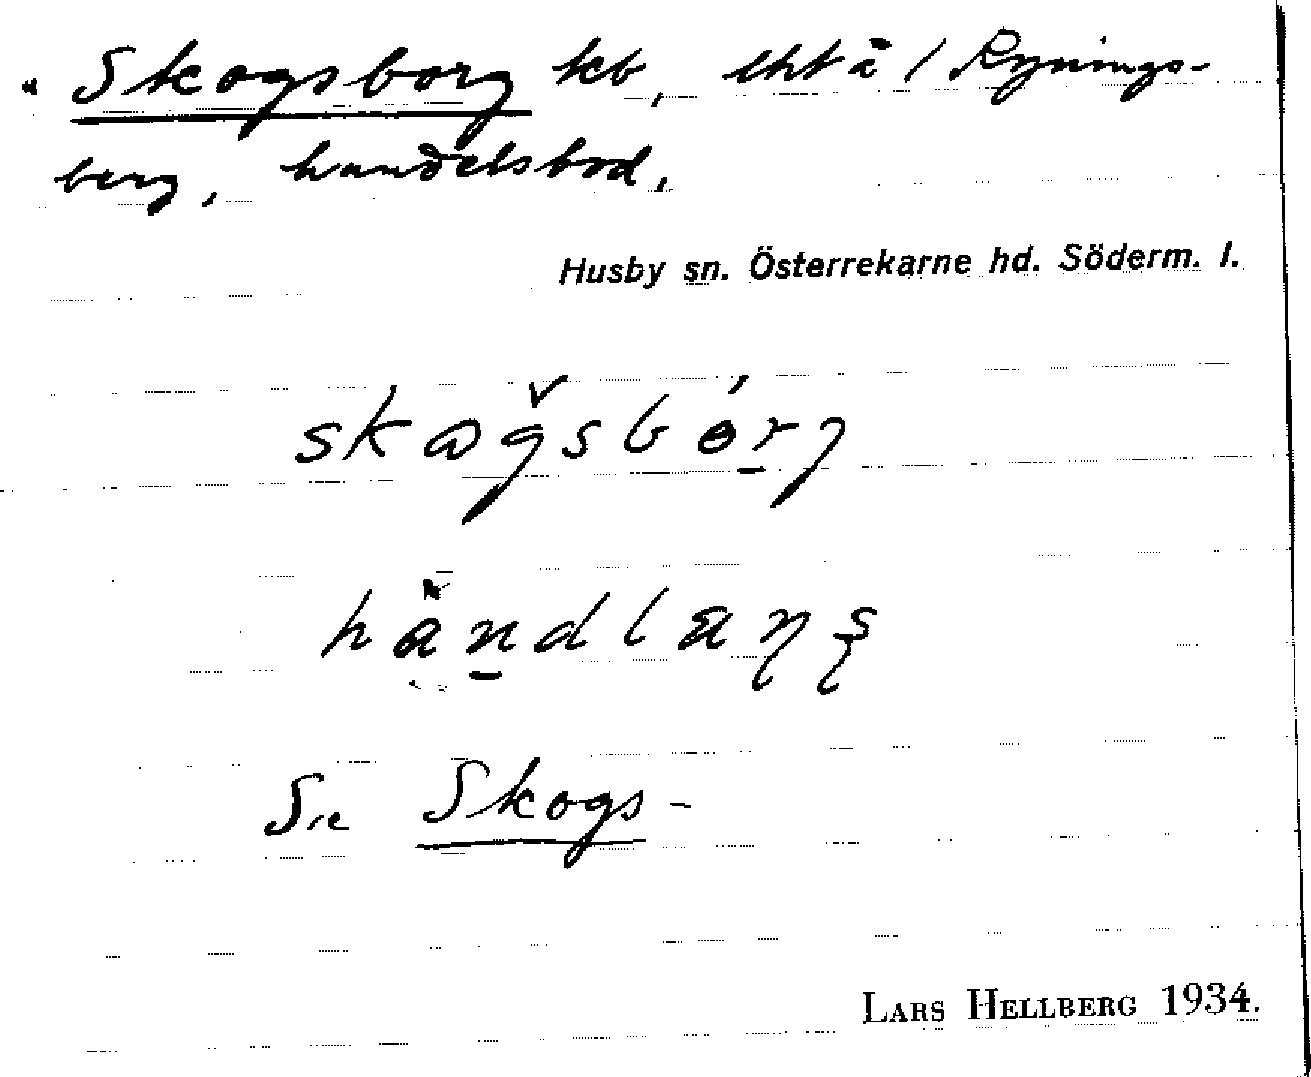 " Skogsborg kb, lht å / Rynings-
berg, handelsbod.
Husby sn. Österrekarne hd. Söderm. l.
Se Skogs-
LARS HELLBERG 1934.